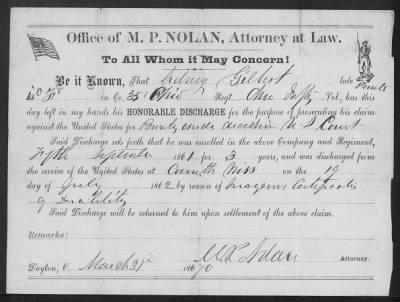 Office of M. P. NOLAN, Attorney at Law.
To All Whom it May Concern!
Be it Known, That Sidney Gilbert late Private
in Co. in Co. 35 Ohio Regt. Ohio Infty Vol., has this
day left in my hands his HONORABLE DISCHARGE for the purpose of prosecuting his claim
against the United States for Bounty under decision U S Court
Said Discharge sets forth that he was enrolled in the above Company and Regiment,
Fifth Septembr 1861 for 3 years, and was discharged from
the service of the United States at Corinth Miss on the 19
day of July 1862 by reason of Surgeons Certificate
of Disability
Said Discharge will be returned to him upon settlement of the above claim.
Remarks:
M. P. Nolan Attorney.
Dayton, O. March 31st 1870